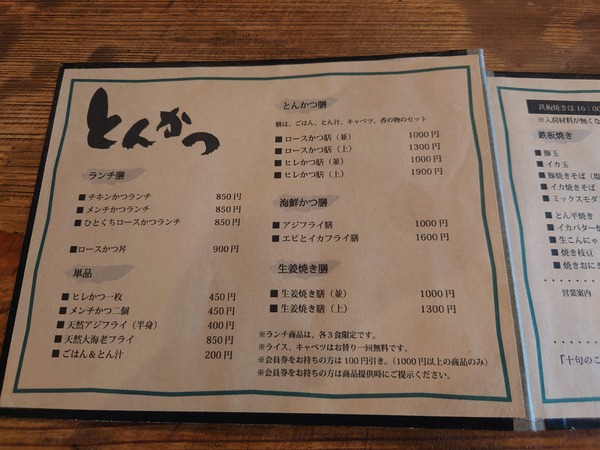 とんかつ
ランチ膳
■チキンかつランチ 850円
■メンチかつランチ 850円
■ひとくちロースかつランチ 850円
■ロースかつ丼 900円
単品
■ヒレかつ一枚 450円
■メンチかつ二個 450円
■天然アジフライ（半身） 400円
■天然大海老フライ 850円
■ごはん＆とん汁 200円
とんかつ膳
膳は、ごはん、とん汁、キャベツ、香の物のセット
■ロースかつ膳（並） 1000円
■ロースかつ膳（上） 1300円
■ヒレかつ膳（並） 1000円
■ヒレかつ膳（上） 1900円
海鮮かつ膳
■アジフライ膳 1000円
■エビとイカフライ膳 1600円
生姜焼き膳
■生姜焼き膳（並） 1000円
■生姜焼き膳（上） 1300円
※ランチ商品は、各3食限定です。
※ライス、キャベツはお替り一回無料です。
※会員券をお持ちの方は100円引き。（1000円以上の商品のみ）
※会員券をお持ちの方は商品提供時にご提示ください。
鉄板焼きは16:00
※入荷材料が無くな
鉄板焼き
■豚玉
■イカ玉
■豚焼きそば（塩
■イカ焼きそば
■ミックスモダン
■とん平焼き
■イカバター焼
■生こんにゃ
■焼き枝豆
■焼きおにぎ
営業案内
「十旬のこ